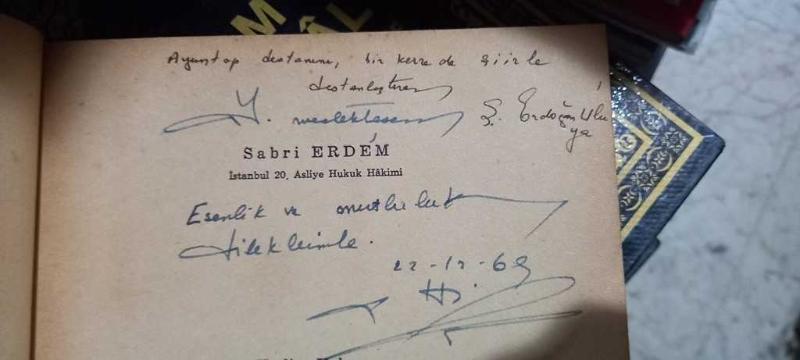 destanını, bir kerre de şiirle
destanlaştıran
Y. meslektaşım Ş. Erdoğan Ulu
ya
Sabri ERDEM
İstanbul 20, Asliye Hukuk Hâkimi
Esenlik ve mutluluk
dileklerimle.
22-12-69